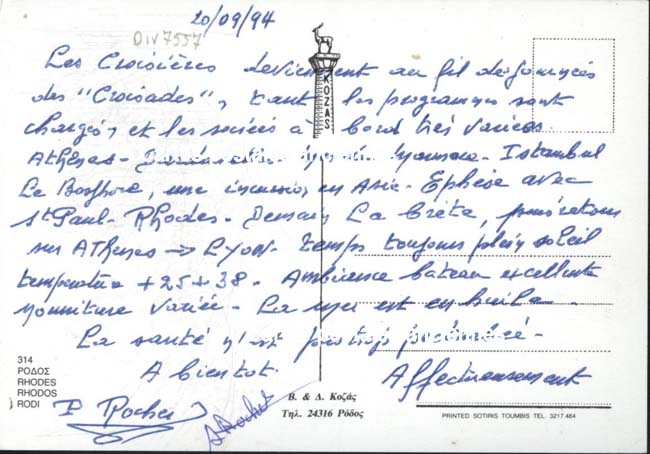 20/09/94
Div 7557
Les Croisières deviennent au fil des journées
des "Croisades", tant les programmes sont
chargés et les soirées à bord très variées.
Athènes - Istanbul
Le Bosphore, une incursion en Asie - Ephèse avec
St Paul - Rhodes - Demain La Crète, puis retour
sur Athènes → Lyon - temps toujours plein soleil
température +25+38 - Ambiance bateau excellente
nourriture variée - La mer est en huile -
La santé n'est pas trop
A bientot.
Affectueusement
P Rocher
KOZAS
314
ΡΟΔΟΣ
RHODES
RHODOS
RODI
Β. & Δ. Κοζάς
Τηλ. 24316 Ρόδος
PRINTED SOTIRIS TOUMBIS TEL. 3217.464